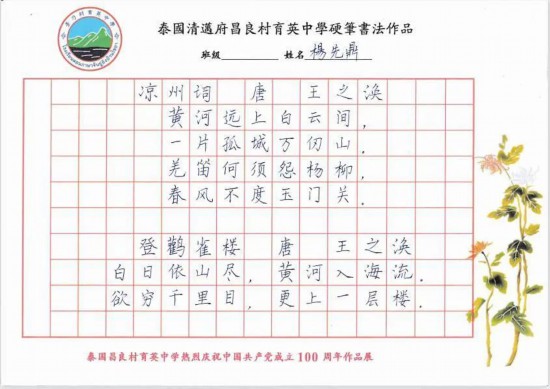 泰國清邁府昌良村育英中學硬筆書法作品
班级 姓名 楊先鼎
凉州词 唐 王之涣
黄河远上白云间，
一片孤城万仞山。
羌笛何须怨杨柳，
春风不度玉门关。
登鹳雀楼 唐 王之涣
白日依山尽，黄河入海流。
欲穷千里目，更上一层楼。
泰国昌良村育英中学热烈庆祝中国共产党成立100周年作品展